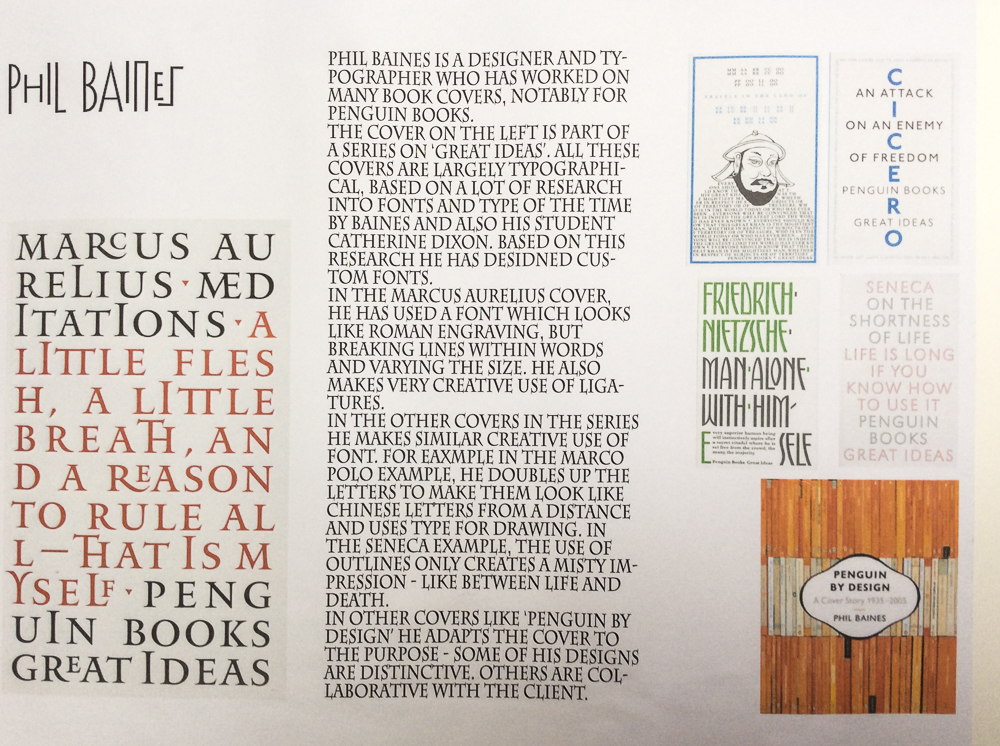 PHIL BAINES
MARCUS AU
RELIUS · MED
ITATIONS · A
LITTLE FLES
H, A LITTLE
BREATH, AN
D A REASON
TO RULE AL
L—THAT IS M
YSELF · PENG
UIN BOOKS
GREAT IDEAS
PHIL BAINES IS A DESIGNER AND TY-
POGRAPHER WHO HAS WORKED ON
MANY BOOK COVERS, NOTABLY FOR
PENGUIN BOOKS.
THE COVER ON THE LEFT IS PART OF
A SERIES ON ‘GREAT IDEAS’. ALL THESE
COVERS ARE LARGELY TYPOGRAPHI-
CAL, BASED ON A LOT OF RESEARCH
INTO FONTS AND TYPE OF THE TIME
BY BAINES AND ALSO HIS STUDENT
CATHERINE DIXON. BASED ON THIS
RESEARCH HE HAS DESIDNED CUS-
TOM FONTS.
IN THE MARCUS AURELIUS COVER,
HE HAS USED A FONT WHICH LOOKS
LIKE ROMAN ENGRAVING, BUT
BREAKING LINES WITHIN WORDS
AND VARYING THE SIZE. HE ALSO
MAKES VERY CREATIVE USE OF LIGA-
TURES.
IN THE OTHER COVERS IN THE SERIES
HE MAKES SIMILAR CREATIVE USE OF
FONT. FOR EAXMPLE IN THE MARCO
POLO EXAMPLE, HE DOUBLES UP THE
LETTERS TO MAKE THEM LOOK LIKE
CHINESE LETTERS FROM A DISTANCE
AND USES TYPE FOR DRAWING. IN
THE SENECA EXAMPLE, THE USE OF
OUTLINES ONLY CREATES A MISTY IM-
PRESSION - LIKE BETWEEN LIFE AND
DEATH.
IN OTHER COVERS LIKE ‘PENGUIN BY
DESIGN’ HE ADAPTS THE COVER TO
THE PURPOSE - SOME OF HIS DESIGNS
ARE DISTINCTIVE. OTHERS ARE COL-
LABORATIVE WITH THE CLIENT.
TRAVELS IN THE LAND OF
PENGUIN BOOKS GREAT IDEAS
CICERO
AN ATTACK
ON AN ENEMY
OF FREEDOM
PENGUIN BOOKS
GREAT IDEAS
FRIEDRICH·
NIETZSCHE·
MAN·ALONE·
WITH·HIM-
SELF
Every superior human being
will instinctively aspire after
a secret citadel where he is
set free from the crowd, the
many, the majority.
Penguin Books Great Ideas
SENECA
ON THE
SHORTNESS
OF LIFE
LIFE IS LONG
IF YOU
KNOW HOW
TO USE IT
PENGUIN
BOOKS
GREAT IDEAS
PENGUIN
BY DESIGN
A Cover Story 1935–2005
PHIL BAINES